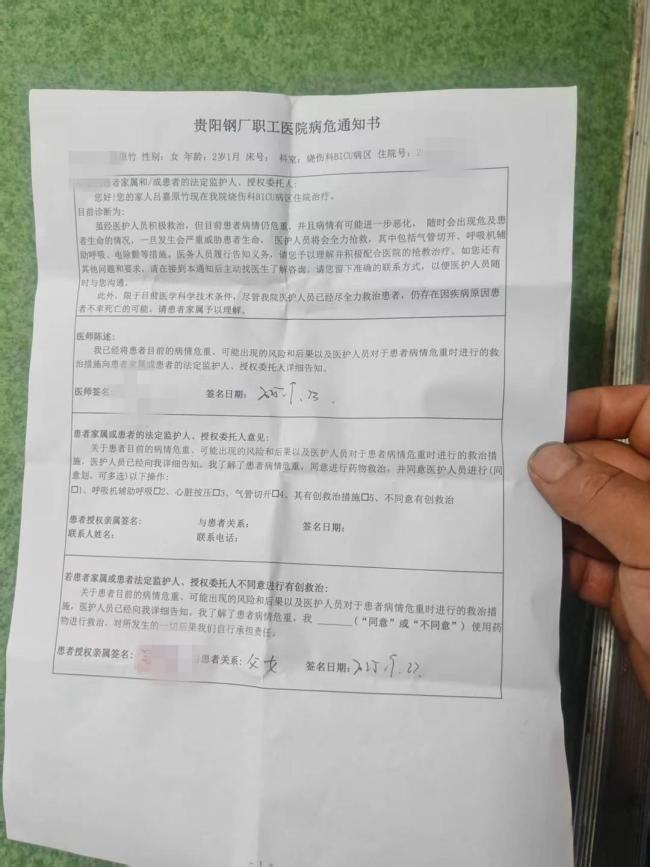 贵阳钢厂职工医院病危通知书
原竹 性别：女 年龄：2岁1月 床号： 科室：烧伤科BICU病区 住院号：2
患者家属和/或患者的法定监护人、授权委托人：
您好!您的家人吕嘉原竹现在我院烧伤科BICU病区住院治疗。
目前诊断为：
虽经医护人员积极救治，但目前患者病情仍危重，并且病情有可能进一步恶化， 随时会出现危及患
者生命的情况，一旦发生会严重威胁患者生命， 医护人员将会全力抢救，其中包括气管切开、呼吸机辅
助呼吸、电除颤等措施。医务人员履行告知义务，请您予以理解并积极配合医院的抢救治疗。如您还有
其他问题和要求，请在接到本通知后主动找医生了解咨询。请您留下准确的联系方式，以便医护人员随
时与您沟通。
此外，限于目前医学科学技术条件，尽管我院医护人员已经尽全力救治患者，仍存在因疾病原因患
者不幸死亡的可能。请患者家属予以理解。
医师陈述：
我已经将患者目前的病情危重、可能出现的风险和后果以及医护人员对于患者病情危重时进行的救
治措施向患者家属或患者的法定监护人、授权委托人详细告知。
医师签名 签名日期：
患者家属或患者的法定监护人、授权委托人意见：
关于患者目前的病情危重、可能出现的风险和后果以及医护人员对于患者病情危重时进行的救治措
施，医护人员已经向我详细告知。我了解了患者病情危重，同意进行药物救治，并同意医护人员进行(同
意划，可多选)以下操作：
□1、呼吸机辅助呼吸□2、心脏按压□3、气管切开□4、其有创救治措施□5、不同意有创救治
患者授权亲属签名： 与患者关系： 签名日期：
联系人姓名： 联系电话：
若患者家属或患者法定监护人、授权委托人不同意进行有创救治：
关于患者目前的病情危重、可能出现的风险和后果以及医护人员对于患者病情危重时进行的救治措
施，医护人员已经向我详细告知。我了解了患者病情危重，我 ______(“同意”或“不同意”）使用药
物进行救治，对所发生的一切后果我们自行承担责任。
患者授权亲属签名： 与患者关系：父女 签名日期：
- 1